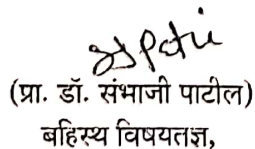 (प्रा. डॉ. संभाजी पाटील)
बहिस्थ विषयतज्ञ,